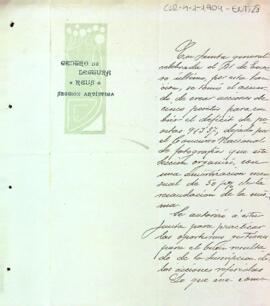 CENTRO DE
LECTURA
REUS
SECCIÓN ARTÍSTICA
En Junta general
celebrada el 31 de
último, por esta
se tomó el
de crear acciones de
cinco pesetas para
el déficit de
dejado por
el Concurso Nacional
de fotografía que esta
Sección organizó, con
una amortización men-
sual de 50 p% de la
recaudación de la mis-
ma.
Se autorizó á esta
Junta para practicar
las oportunas gestiones
para el buen resulta-
do de la suscripción de
las acciones referidas.
Lo que me